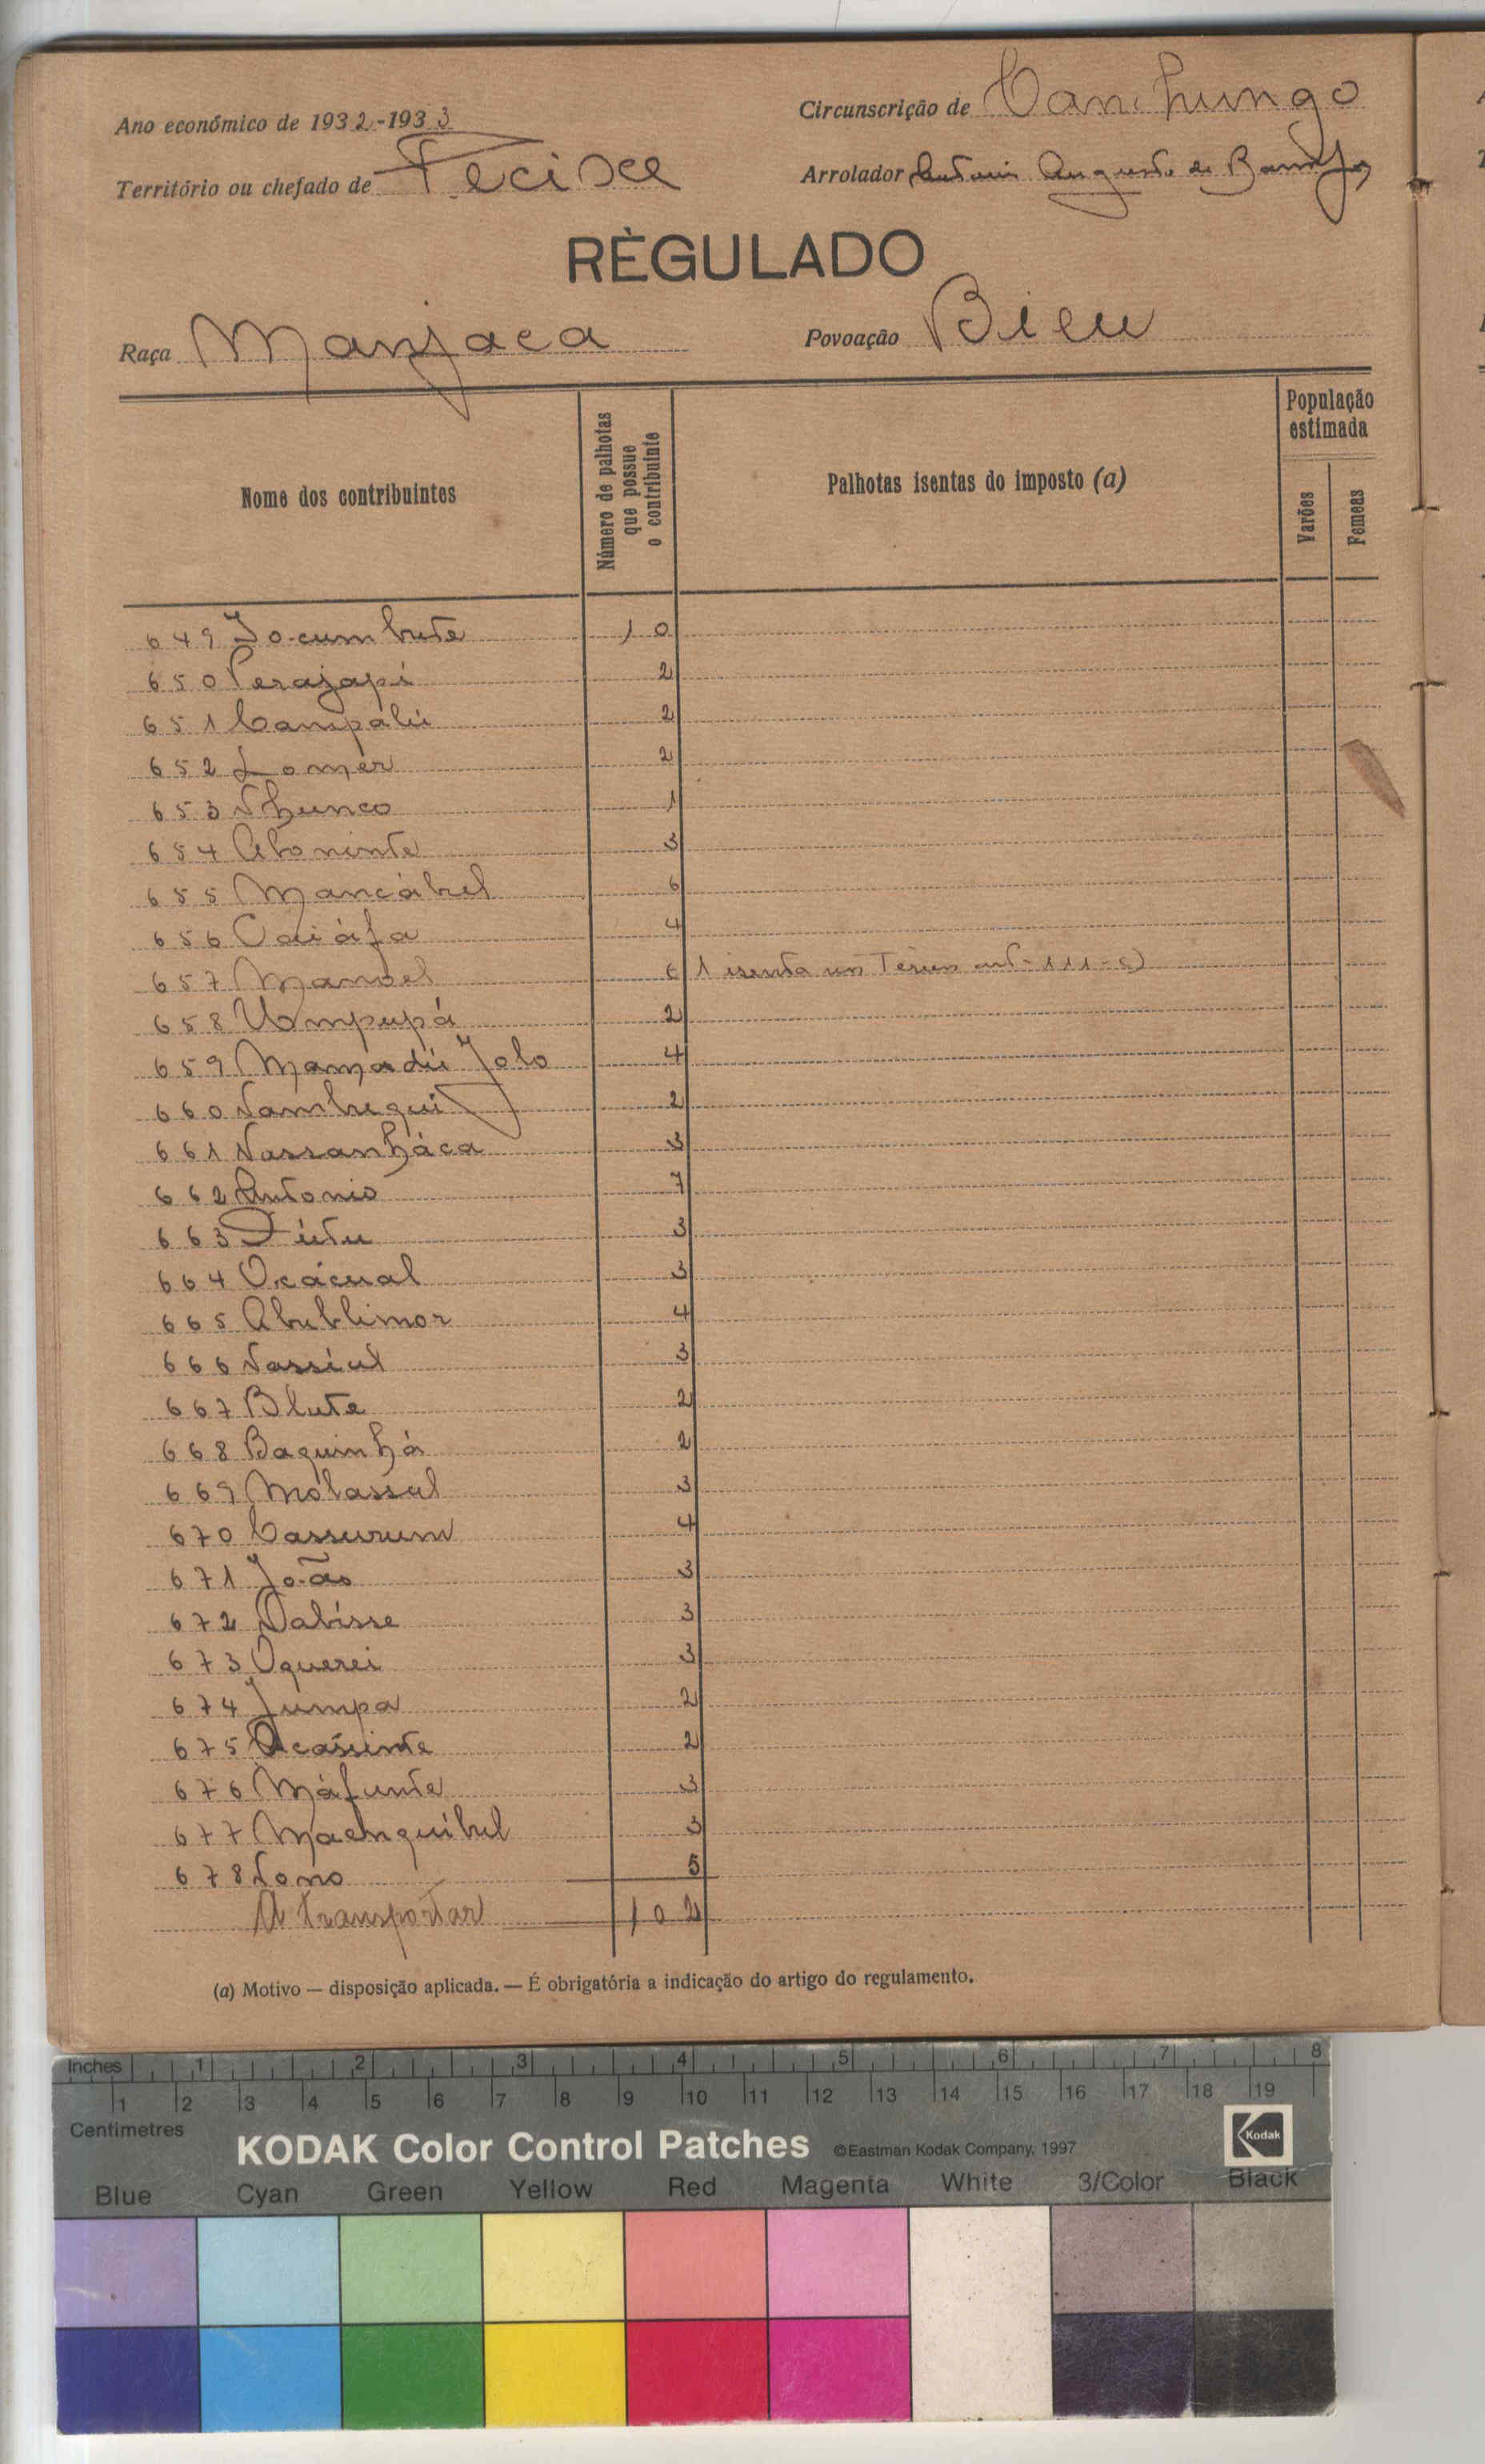 Ano económico de 1932-1933
Circunscrição de Canchungo
Território ou chefado de Pecixe
Arrolador Antonio Augusto de
RÈGULADO
Raça Manjaca
Povoação Bieu
Nome dos contribuintes
Número de palhotas que possue o contribuinte
Palhotas isentas do imposto (a)
População estimada
Varões
Femeas
649 Jo-cumbute 10
650 Perajapi 2
651 Campalú 2
652 Lomer 2
653 Nhunco 1
654 Aboninte 3
655 Mancábul 6
656 Caiáfa 4
657 Manoel 6 1 isenta art-111-c)
658 Umpupá 2
659 Mamadú Jolo 4
660 Nambequi 2
661 Nassanháca 3
662 Antonio 7
663 Fútu 3
664 Ocácual 3
665 Abublimor 4
666 Nassiul 3
667 Blute 2
668 Baquinhá 2
669 Molassul 3
670 Cassurum 4
671 João 3
672 Dabisse 3
673 Oquerei 3
674 Jumpa 2
675 2
676 Máfunte 3
677 Maenquibul 3
678 Nono 5
A transportar 102
(a) Motivo — disposição aplicada. — É obrigatória a indicação do artigo do regulamento.
Inches 1 2 3 4 5 6 7 8
1 2 3 4 5 6 7 8 9 10 11 12 13 14 15 16 17 18 19
Centimetres
KODAK Color Control Patches ©Eastman Kodak Company, 1997 Kodak
Blue Cyan Green Yellow Red Magenta White 3/Color Black